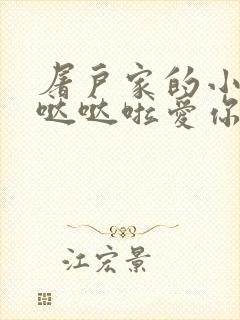 屠户家的小
哒哒啦爱你
江宏景